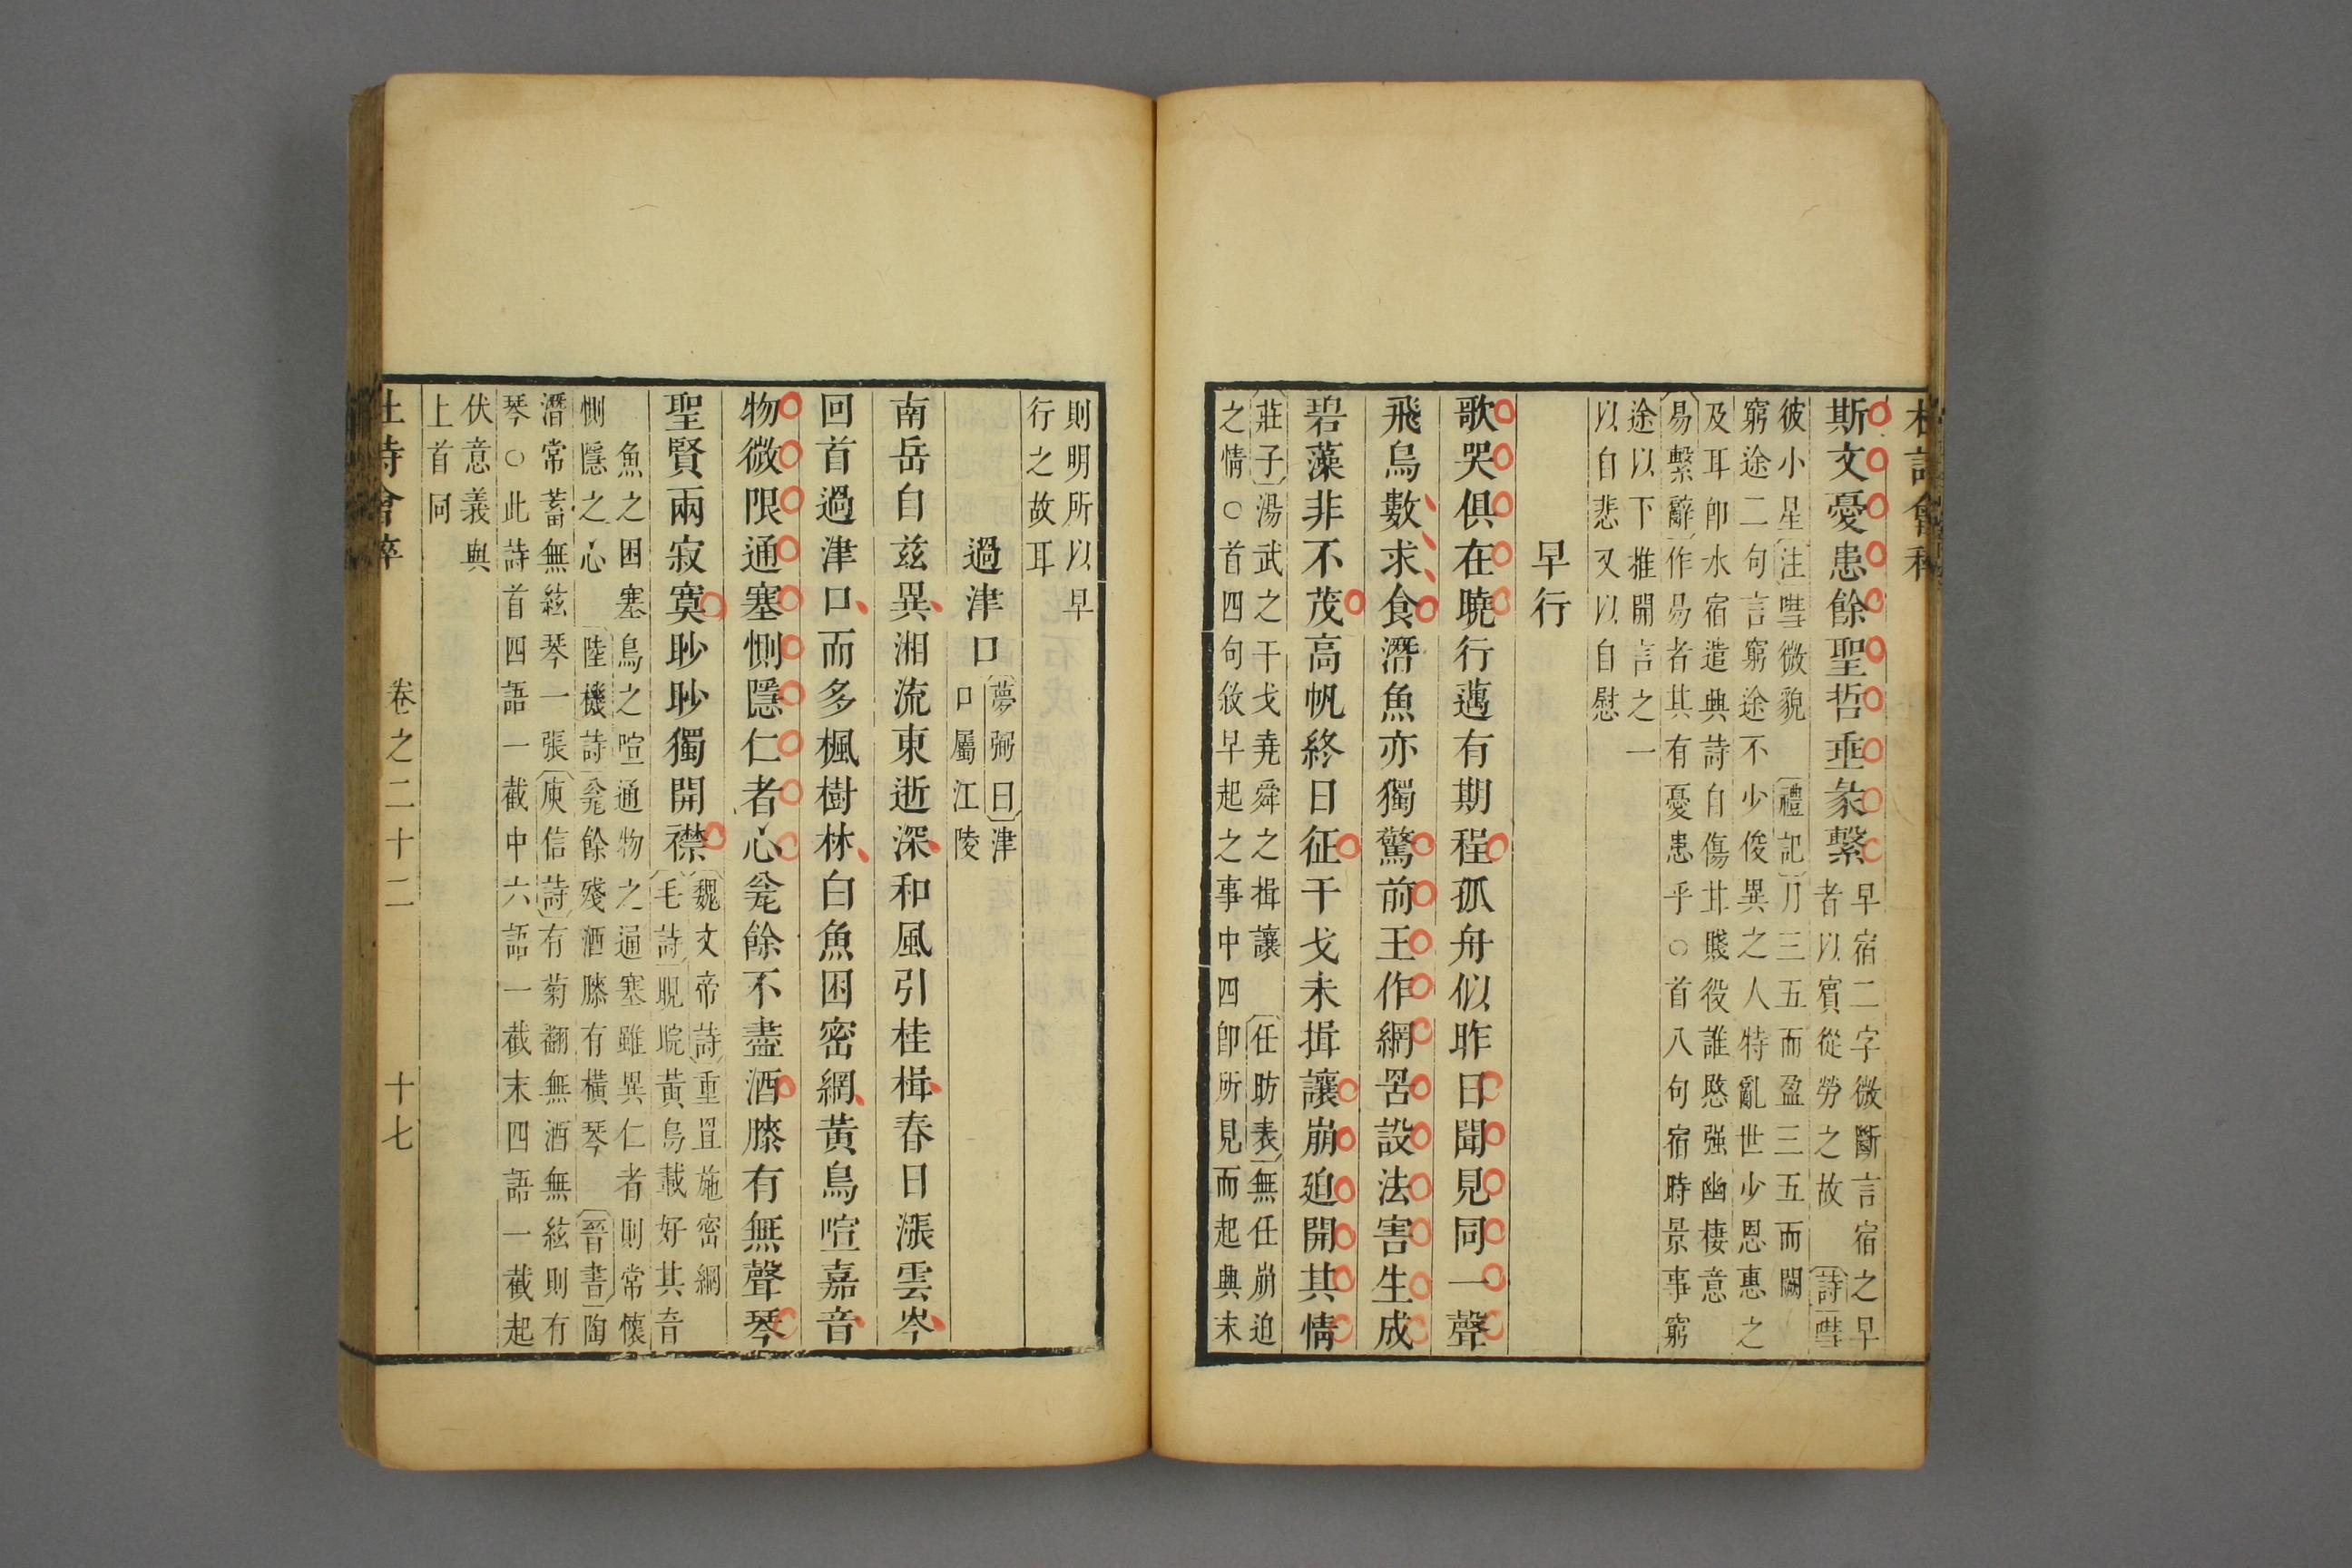 斯文憂患餘聖哲垂彖繫
早宿二字微斷言宿之早
者以賓從勞之故 詩嘒
彼小星注嘒微貌 禮記月三五而盈三五而闕
窮途二句言窮途不少俊異之人特亂世少恩惠之
及耳卽水宿遣興詩自傷甘賤役誰愍强幽棲意
易繫辭作易者其有憂患乎○首八句宿時景事窮
途以下推開言之一
以自悲又以自慰
早行
歌哭俱在曉行邁有期程孤舟似昨日聞見同一聲
飛鳥數求食潛魚亦獨驚前王作網罟設法害生成
碧藻非不茂高帆終日征干戈未揖讓崩迫開其情
莊子湯武之干戈堯舜之揖讓 任昉表無任崩迫
之情○首四句敘早起之事中四卽所見而起興末
則明所以早
行之故耳
過津口
夢弼曰津
口屬江陵
南岳自茲異湘流東逝深和風引桂楫春日漲雲岑
回首過津口而多楓樹林白魚困密網黃鳥喧嘉音
物微限通塞惻隱仁者心瓮餘不盡酒膝有無聲琴
聖賢兩寂寞眇眇獨開襟
魏文帝詩重罝施密網
毛詩睍睆黃鳥載好其音
魚之困塞鳥之喧通物之通塞雖異仁者則常懷
惻隱之心 陸機詩瓮餘殘酒膝有橫琴 晉書陶
潛常蓄無絃琴一張庾信詩有菊翻無酒無絃則有
琴○此詩首四語一截中六語一截末四語一截起
伏意義與
上首同
杜詩會稡 卷之二十二 十七